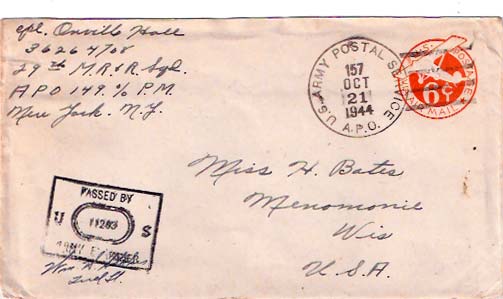 cpl. Orville Hall
36264708
29th M.R.&R. Sqd.
APO 149 % P.M.
New York. N.Y.
U.S. ARMY POSTAL SERVICE
157
OCT
21
1944
A.P.O.
U.S. POSTAGE
6¢
AIR MAIL
Miss H. Bates
Menomonie
Wis
U.S.A.
PASSED BY
U 11203 S
ARMY EXAMINER
2nd Lt.